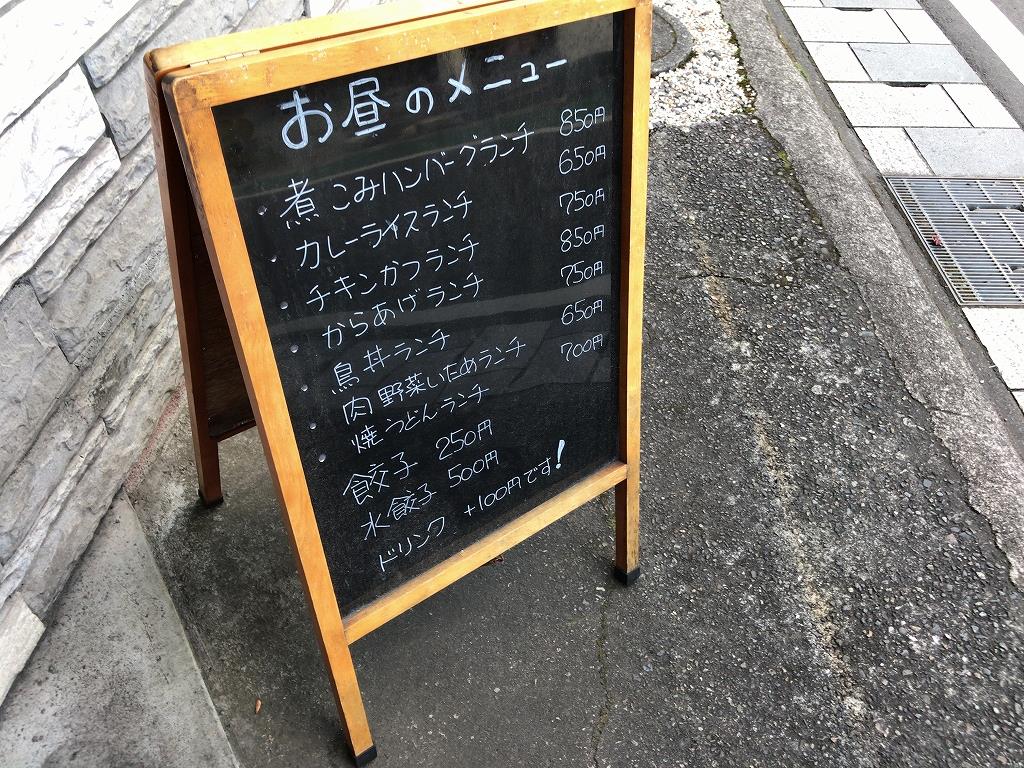 お昼のメニュー
煮こみハンバーグランチ 850円
カレーライスランチ 650円
チキンカツランチ 750円
からあげランチ 850円
鳥丼ランチ 750円
肉野菜いためランチ 650円
焼うどんランチ 700円
餃子 250円
水餃子 500円
ドリンク +100円です!